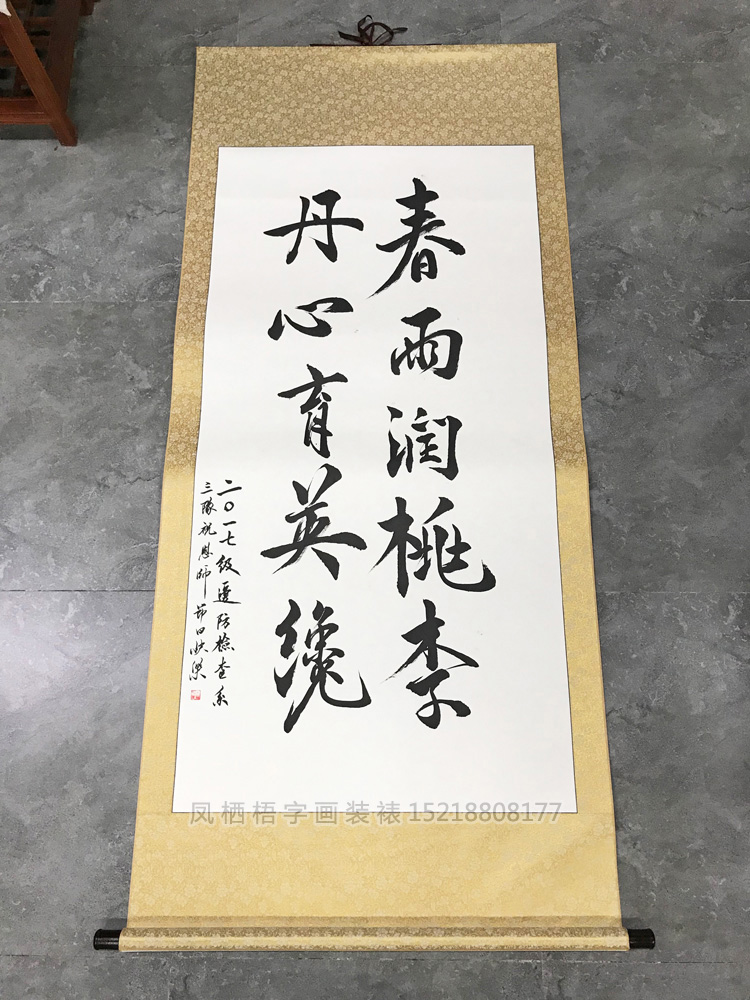 春雨润桃李
丹心育英才
二〇一七级边防检查系
三队祝恩师节日快乐
凤栖梧字画装裱15218808177